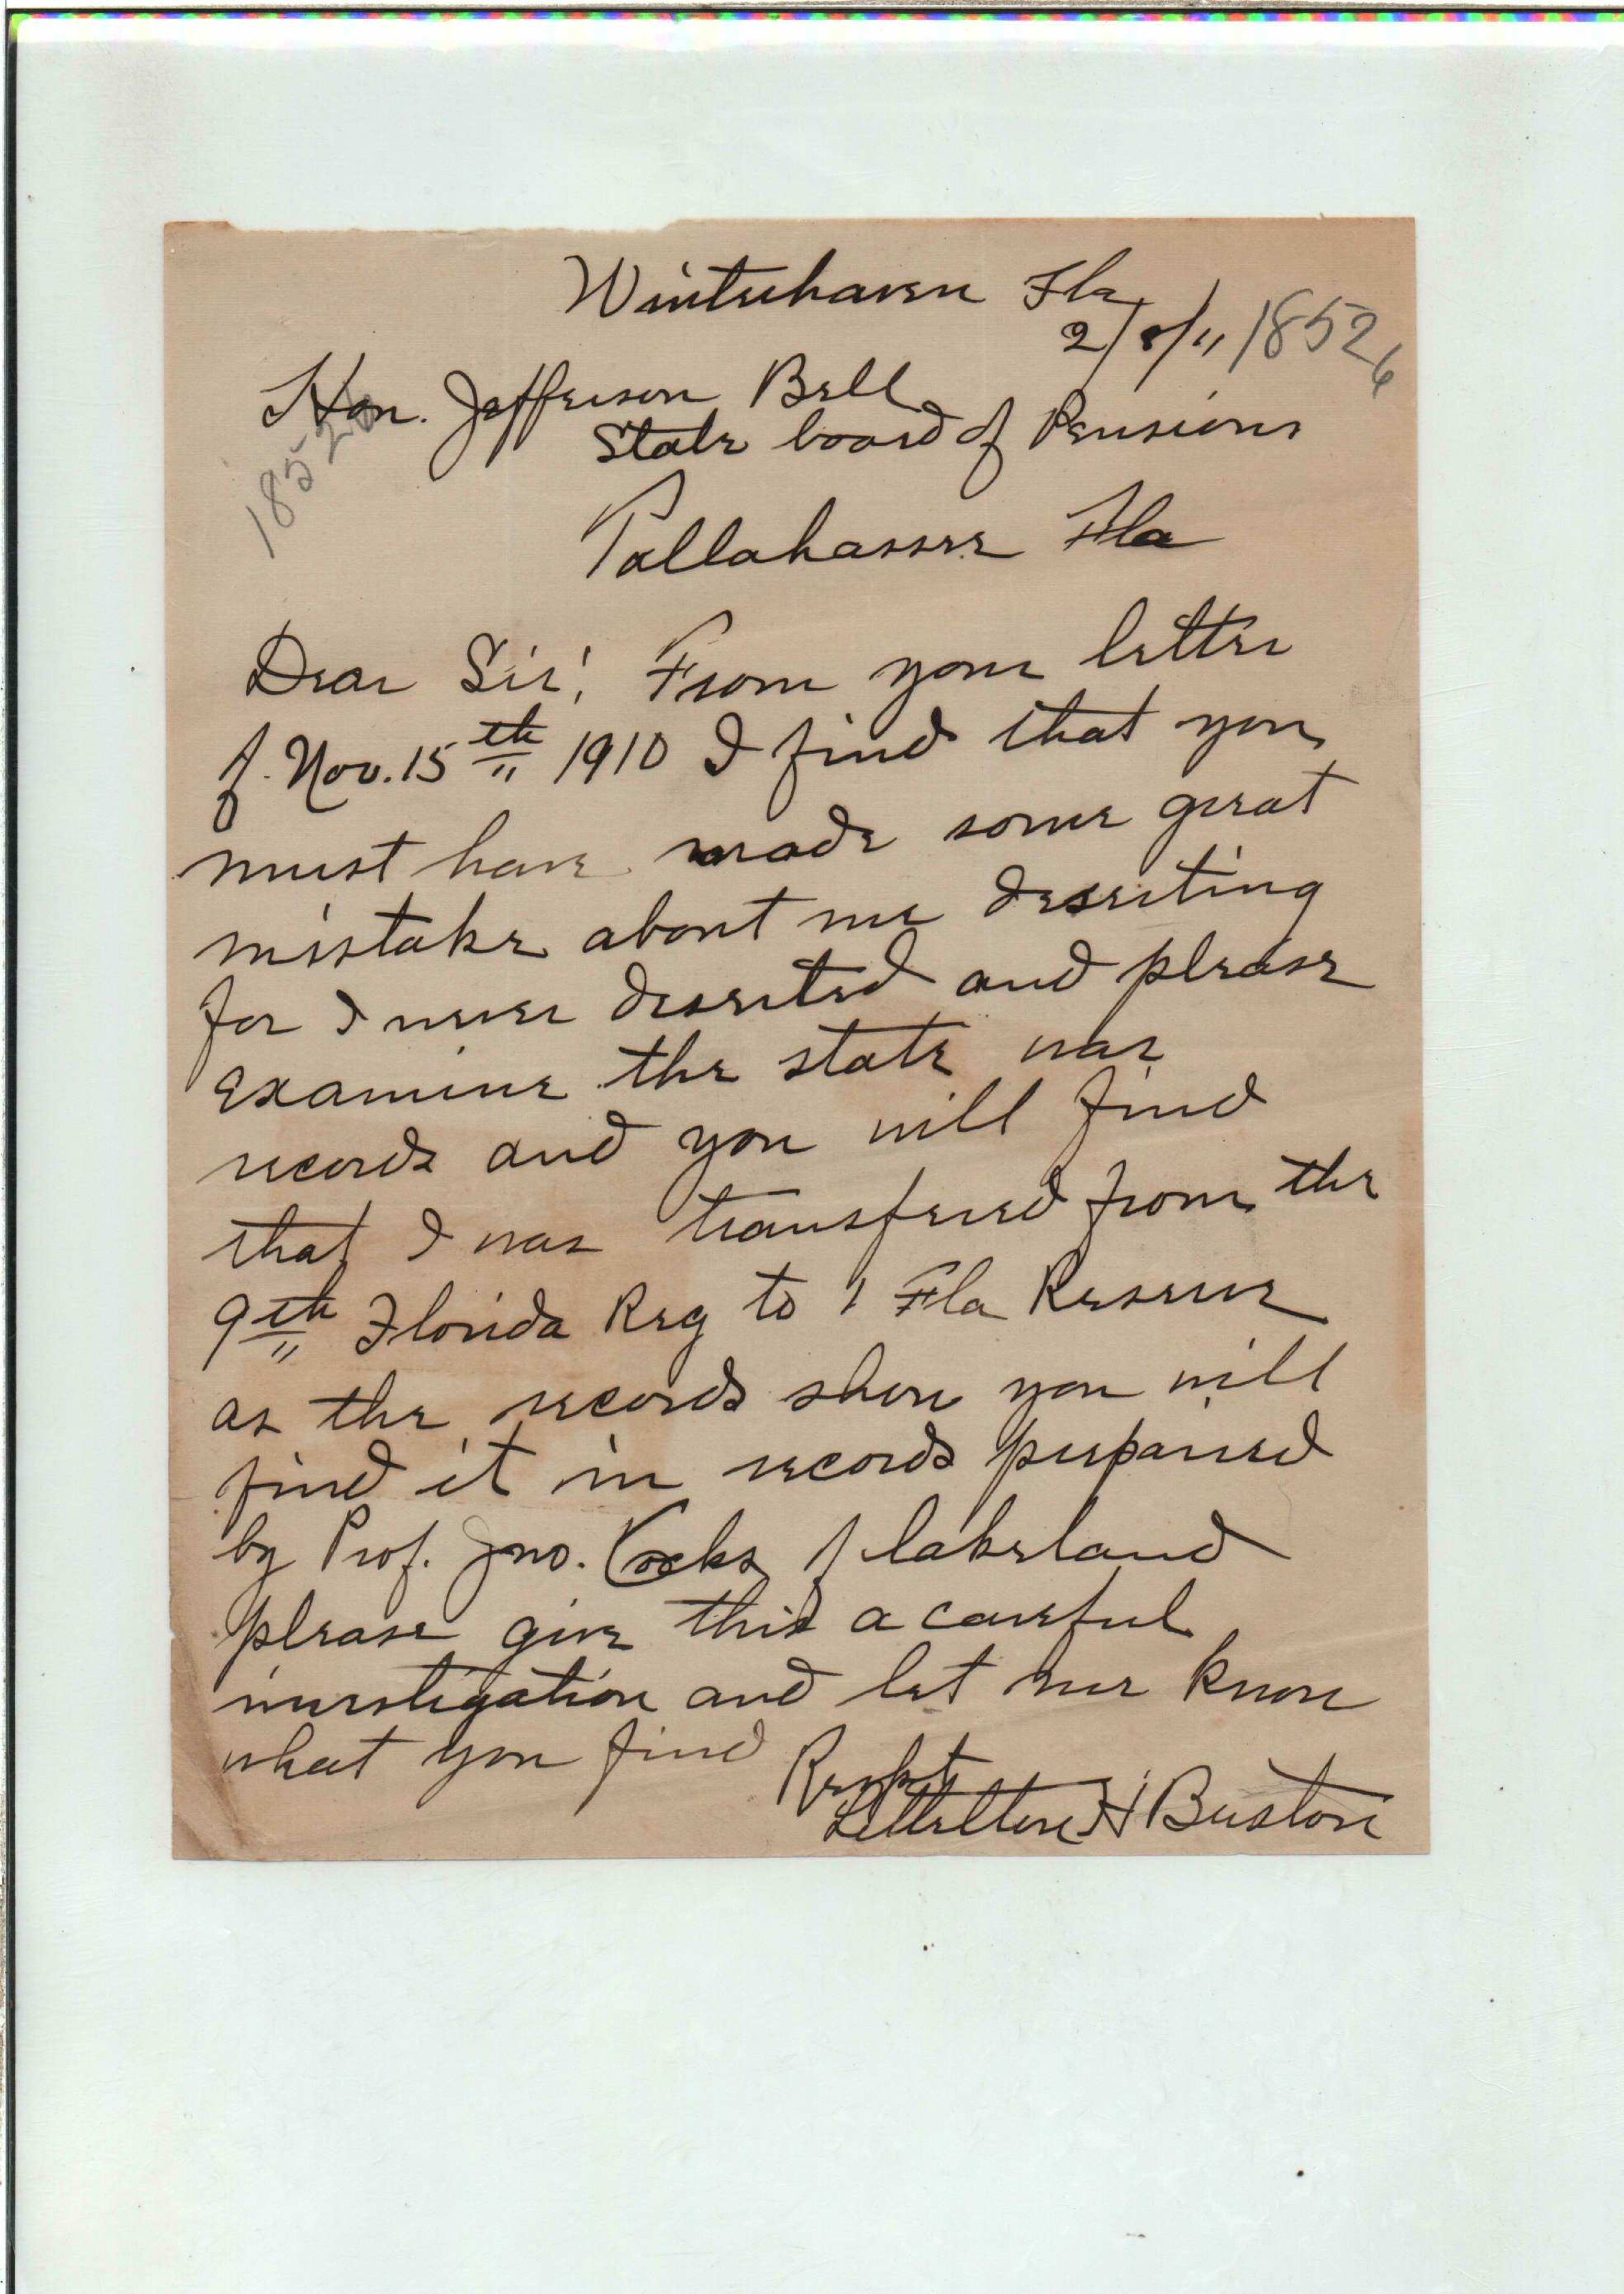 Winterhaven Fla
2/8/11 18526
Hon. Jefferson Bell
18526
State board of Pensions
Tallahassee Fla
Dear Sir! From your letter
of Nov. 15th 1910 I find that you
must have made some great
mistake about me deserting
for I never deserted and please
examine the state war
records and you will find
that I was transfered from the
9th Florida Reg to 1 Fla Reserve
as the records show you will
find it in records prepaired
by Prof. Jno. Cocks of lakeland
please give this a careful
investigation and let me know
what you find
Respt
H Buston